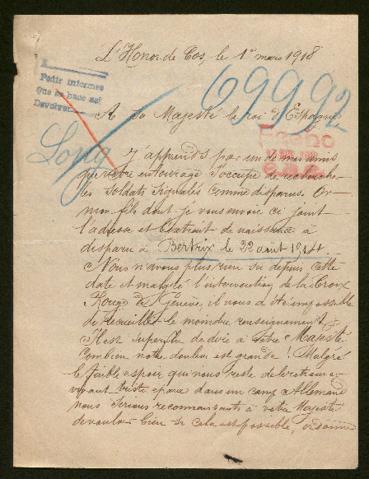 L'Honor de Cos, le 1er mars 1918
Pedir informes
Que se hace así
Devolver
69992
A Sa Majesté le roi d'Espagne
Long
J'apprends par un de mes amis
que votre entourage s'occupe de rechercher
les soldats signalés comme disparus. Or
mon fils dont je vous envoie ci joint
l'adresse et l'extrait de naissance a
disparu à Bertrix le 22 août 1914.
Nous n'avons plus rien su depuis cette
date et malgré l'intervention de la Croix
Rouge de Genève, il nous a été impossible
de recueillir le moindre renseignement.
Il est superflu de dire à Votre Majesté
combien notre douleur est grande! Malgré
le faible espoir qui nous reste de le retrouver
vivant dans un camp Allemand
nous serions reconnaissants à votre Majesté
de vouloir bien si cela est possible,